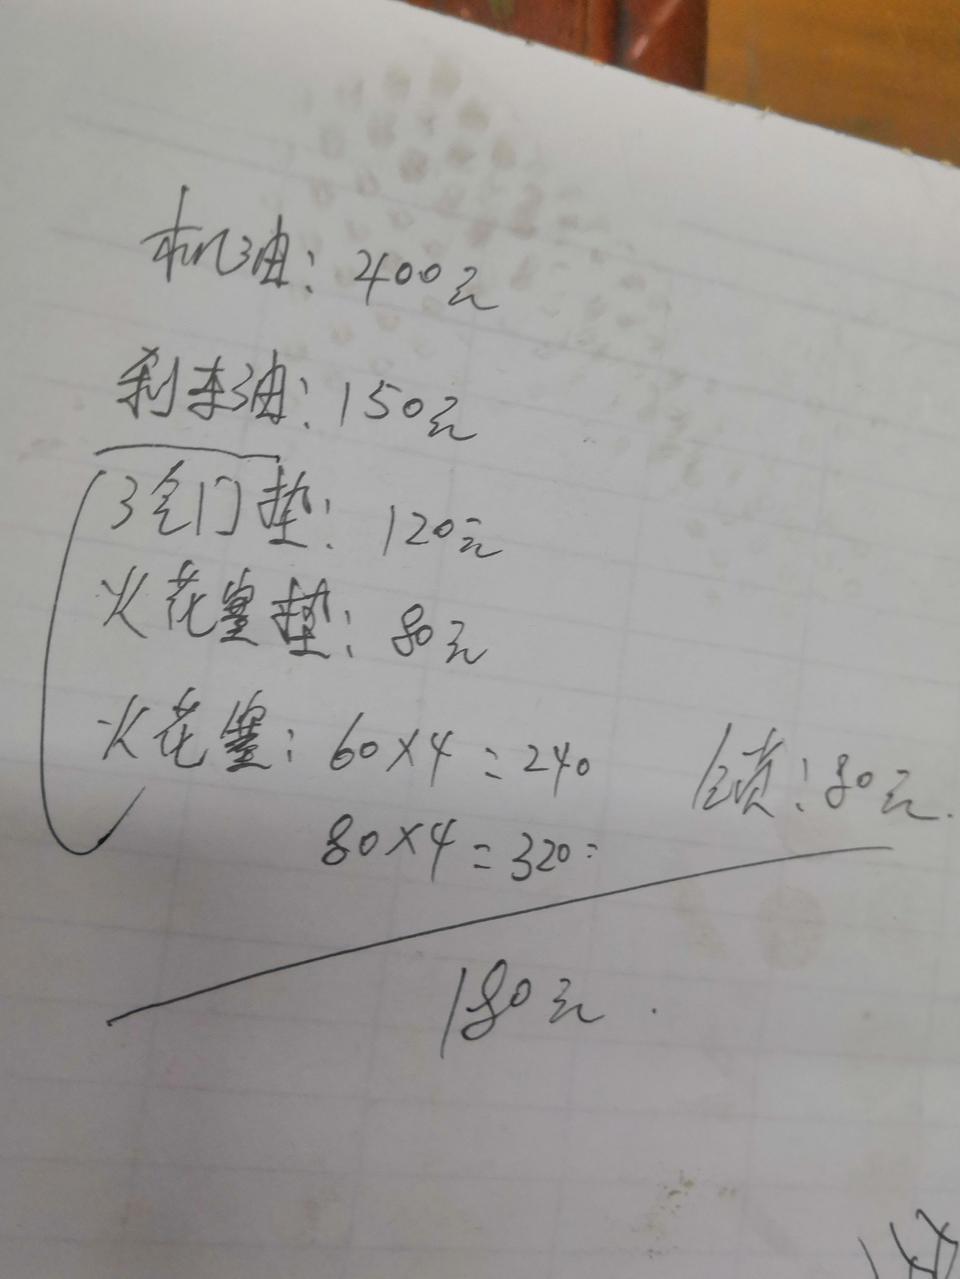 机油：400元
刹车油：150元
气门垫：120元
火花塞垫：80元
火花塞：60×4=240
80×4=320
：80元.
180元.